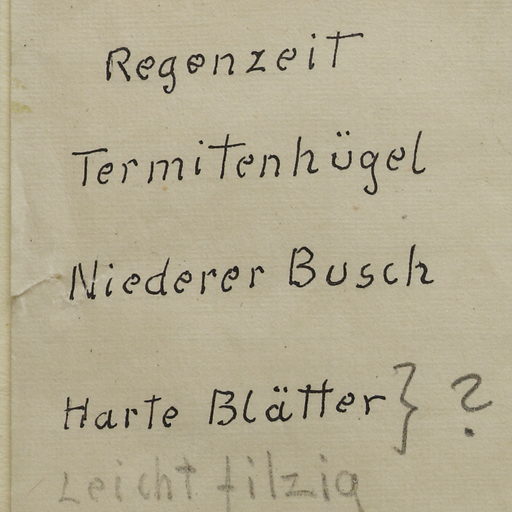 Regenzeit
Termitenhügel
Niederer Busch
Harte Blätter } ?
Leicht filzig